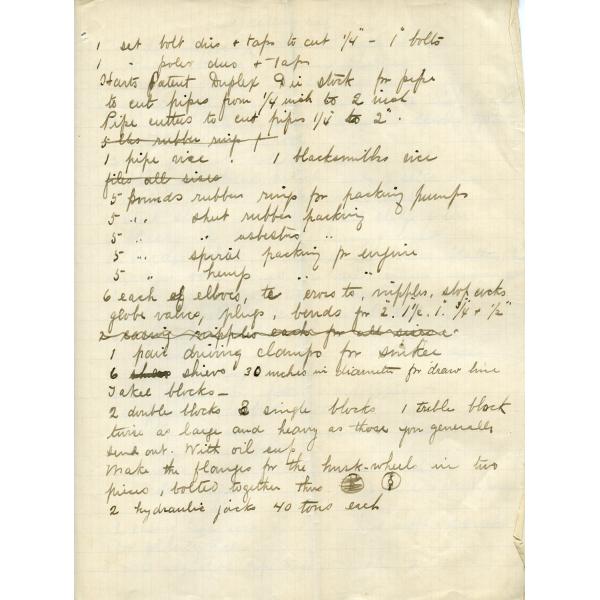 1 set bolt dies + taps to cut 1/4" - 1" bolts
1 " dies + Taps
Harts Patent Duplex Die stock for pipe
to cut pipes from 1/4 inch to 2 inch
Pipe cutters to cut pipes 1/4 to 2".
5 lbs rubber
1 pipe vice . 1 blacksmiths vice
files all sizes
5 pounds rubber rings for packing pumps
5 " . sheet rubber packing
5 " . " asbestos "
5 " . spiral packing for engine
5 " hemp " "
6 each of elbows, te cross te, nipples, stop cocks
globe valves, plugs, bends for 2", 1 1/2, 1", 3/4 + 1/2"
2 nipples each for all sizes
1 pair driving clamps for sinker
6 shivs 30 inches in diameter for draw line
Takel blocks -
2 double blocks 2 single blocks 1 treble block
twice as large and heavy as those you generally
send out. With oil cup
Make the flanges for the wheel in two
pieces, bolted together thus
2 hydraulic jacks 40 tons each